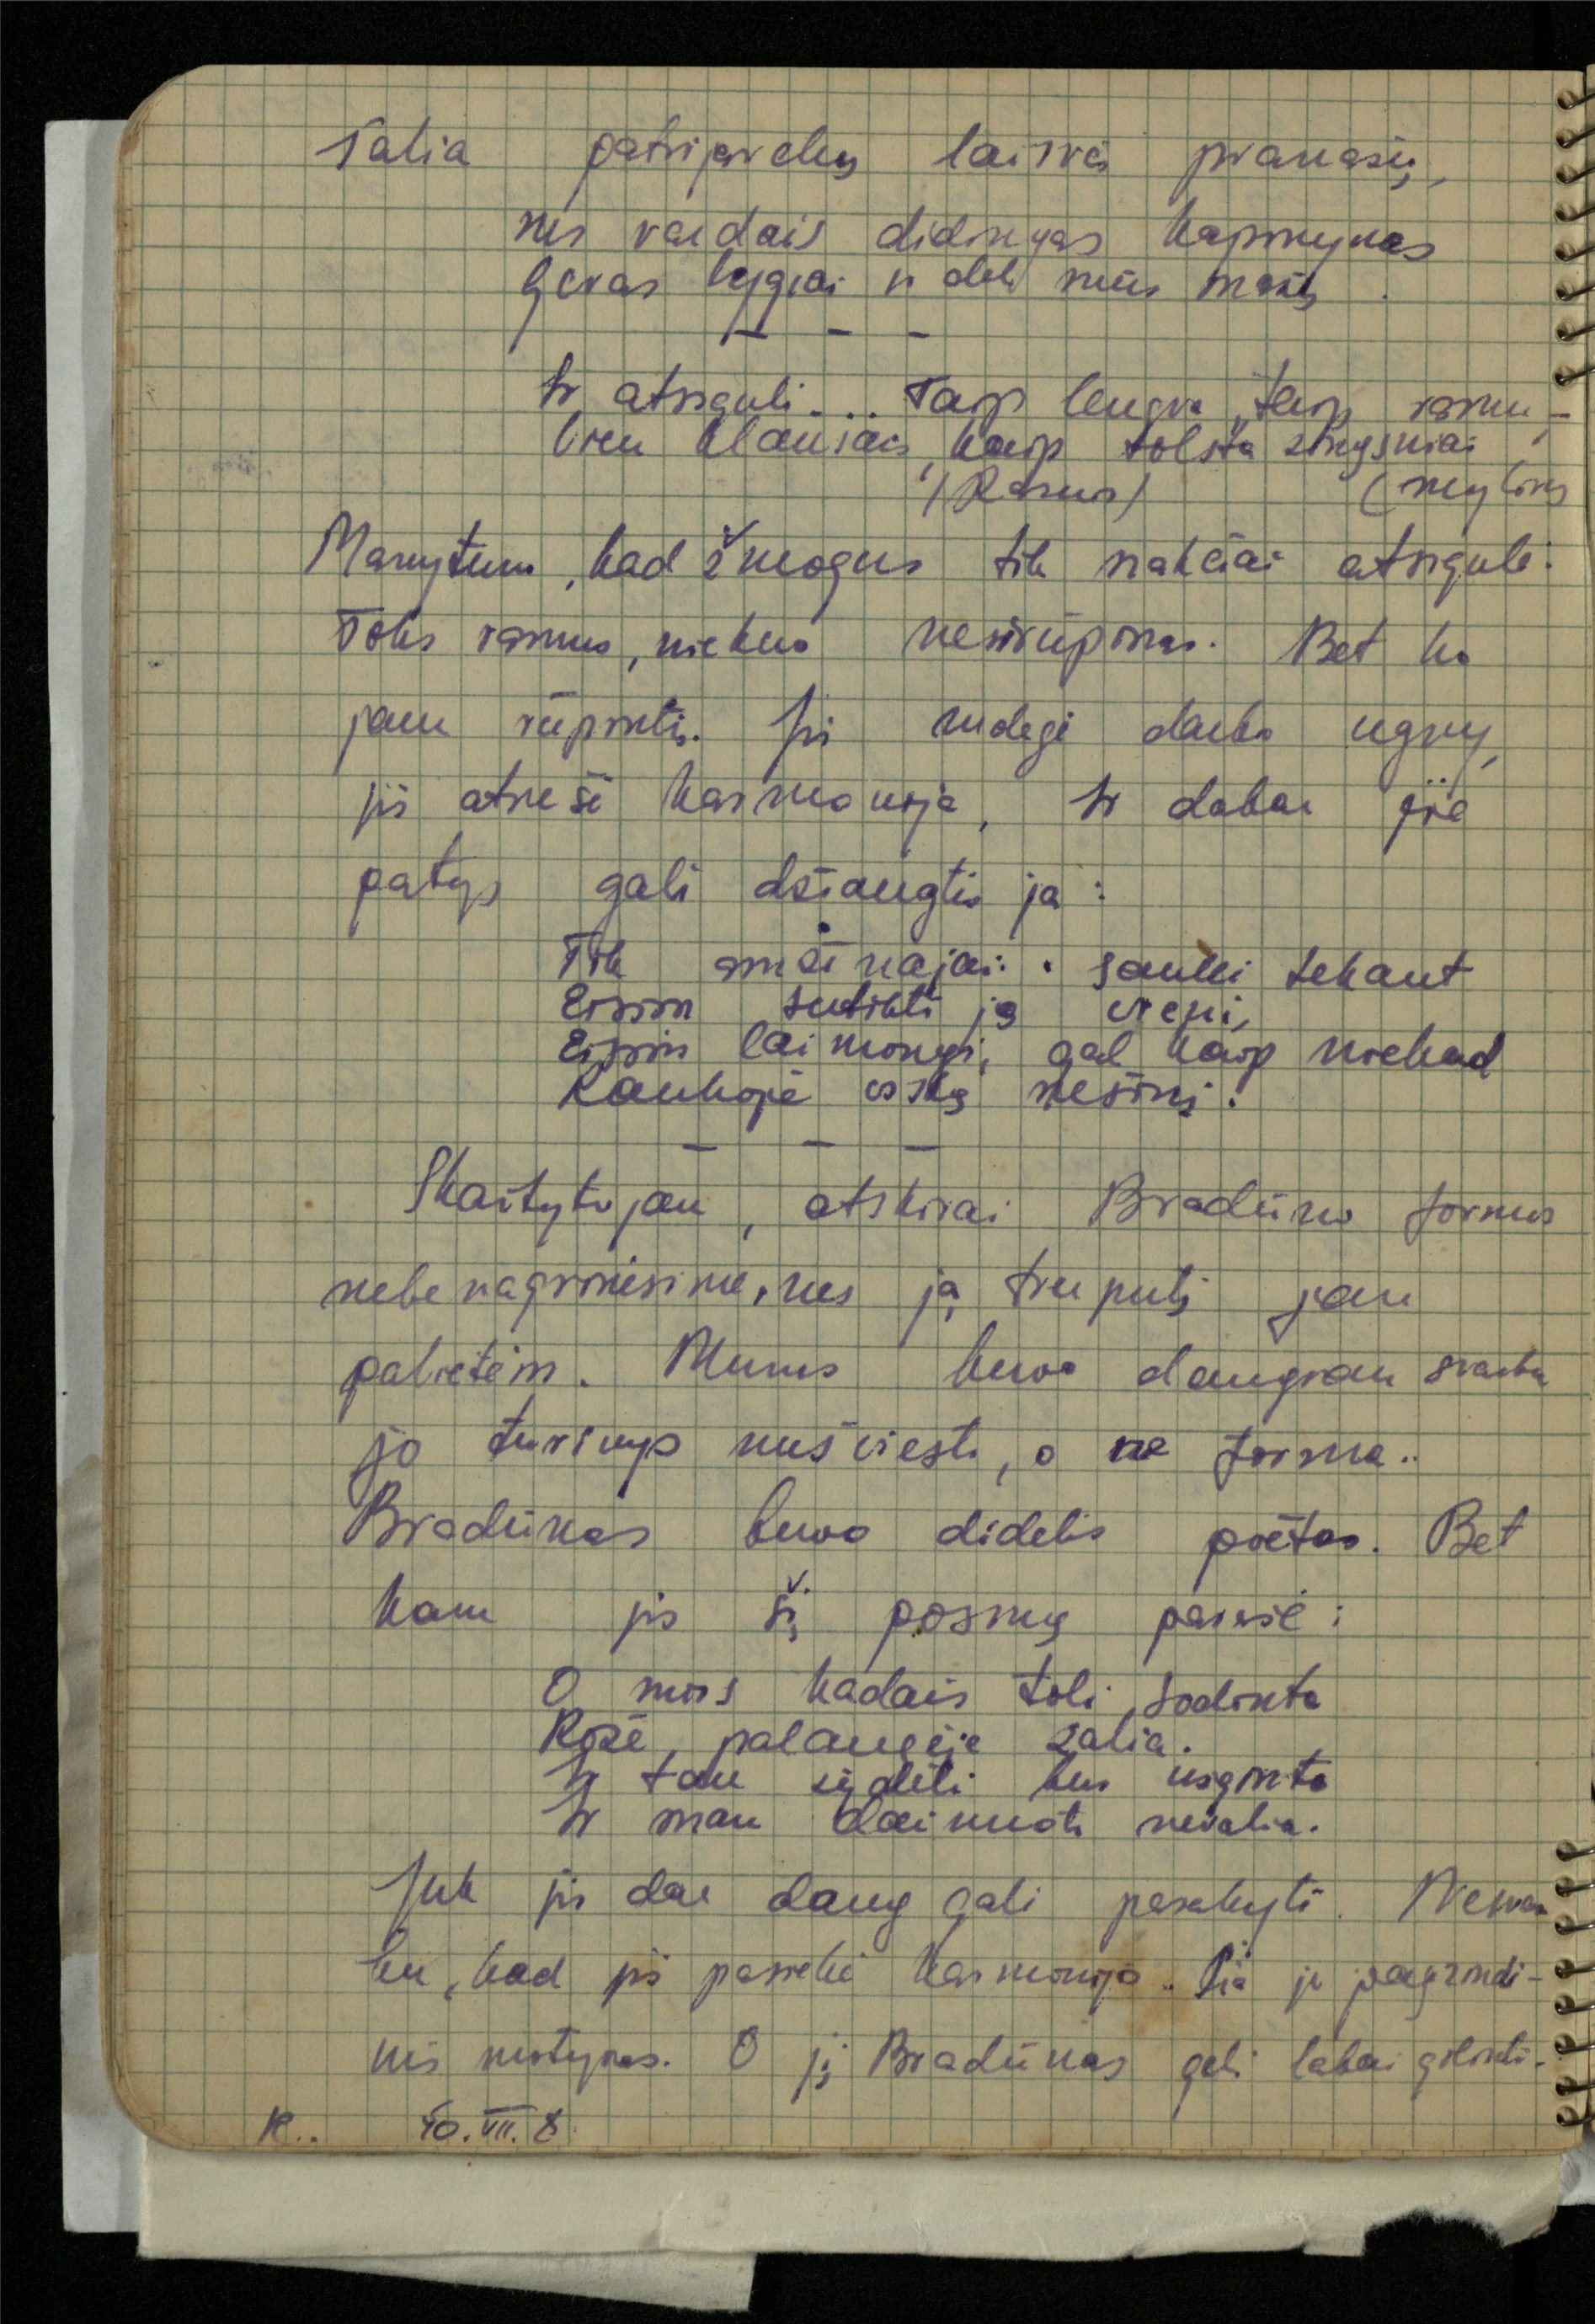 Šalia patrijarchų laisvės pranašų,
nes vardais didingas kapinynas
Geras lygiai ir dėl mūs mažų.
— — —
Ir atsiguli... Taip lengva, taip ramu, –
Vien klausais, kaip tolsta žingsniai
(Ramus) (mylimų
Manytum, kad žmogus tik nakčiai atsigulė.
Toks ramus, niekuo nesirūpinąs. Bet ko
jam rūpintis. Jis sudegė darbo ugny,
jis atnešė harmoniją, Ir dabar jie
patys gali džiaugtis ja:
Tik amžinajai saulei tekant
Eisim sutikti jos vieni,
Eisim laimingi, gal kaip niekad
Rankoje viską nešini.
— — —
Skaitytojau, atskirai Bradūno formos
nebenagrinėsime, nes ją truputį jau
palietėm. Mums buvo daugiau svarbu
jo turinys nušviesti, o ne forma..
Bradūnas buvo didelis poėtas. Bet
kam jis šį posmą parašė:
O mūs kadais toli sodinta
Rožė, palangėje žalia.
Ir tau žydėti bus užginta
Ir man dainuoti nevalia.
Juk jis dar daug gali pasakyti.
ku, kad jis pasiekė harmoniją. Šia jo pagrindi-
nis motyvas. O jį Bradūnas gali labai gilinti.
K.. 40.VII.8